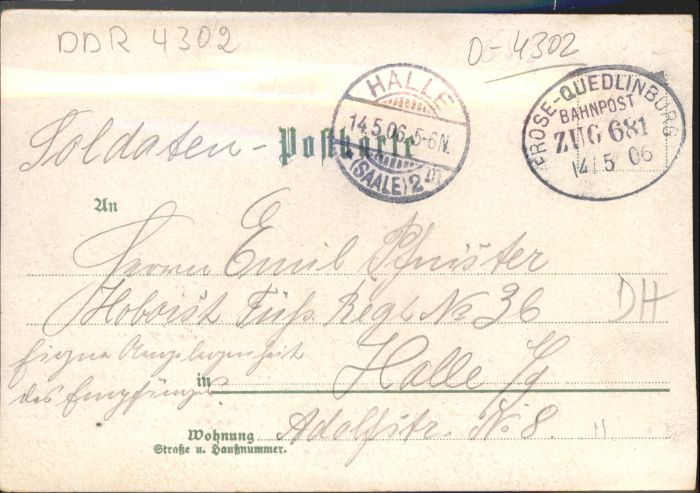 DDR 4302
D-4302
HALLE
14.5.06. 5-6N.
(SAALE) 2
FROSE-QUEDLINBURG
BAHNPOST
ZUG 681
14 5 06
Soldaten- Postkarte
An
Herrn Emil Pfnister
Hoboist Füs. Regt No 36
DH
Eigne Angelegenheit
des Empfängers
in Halle
Adolfstr. No 8.
Wohnung
Straße u. Hausnummer.